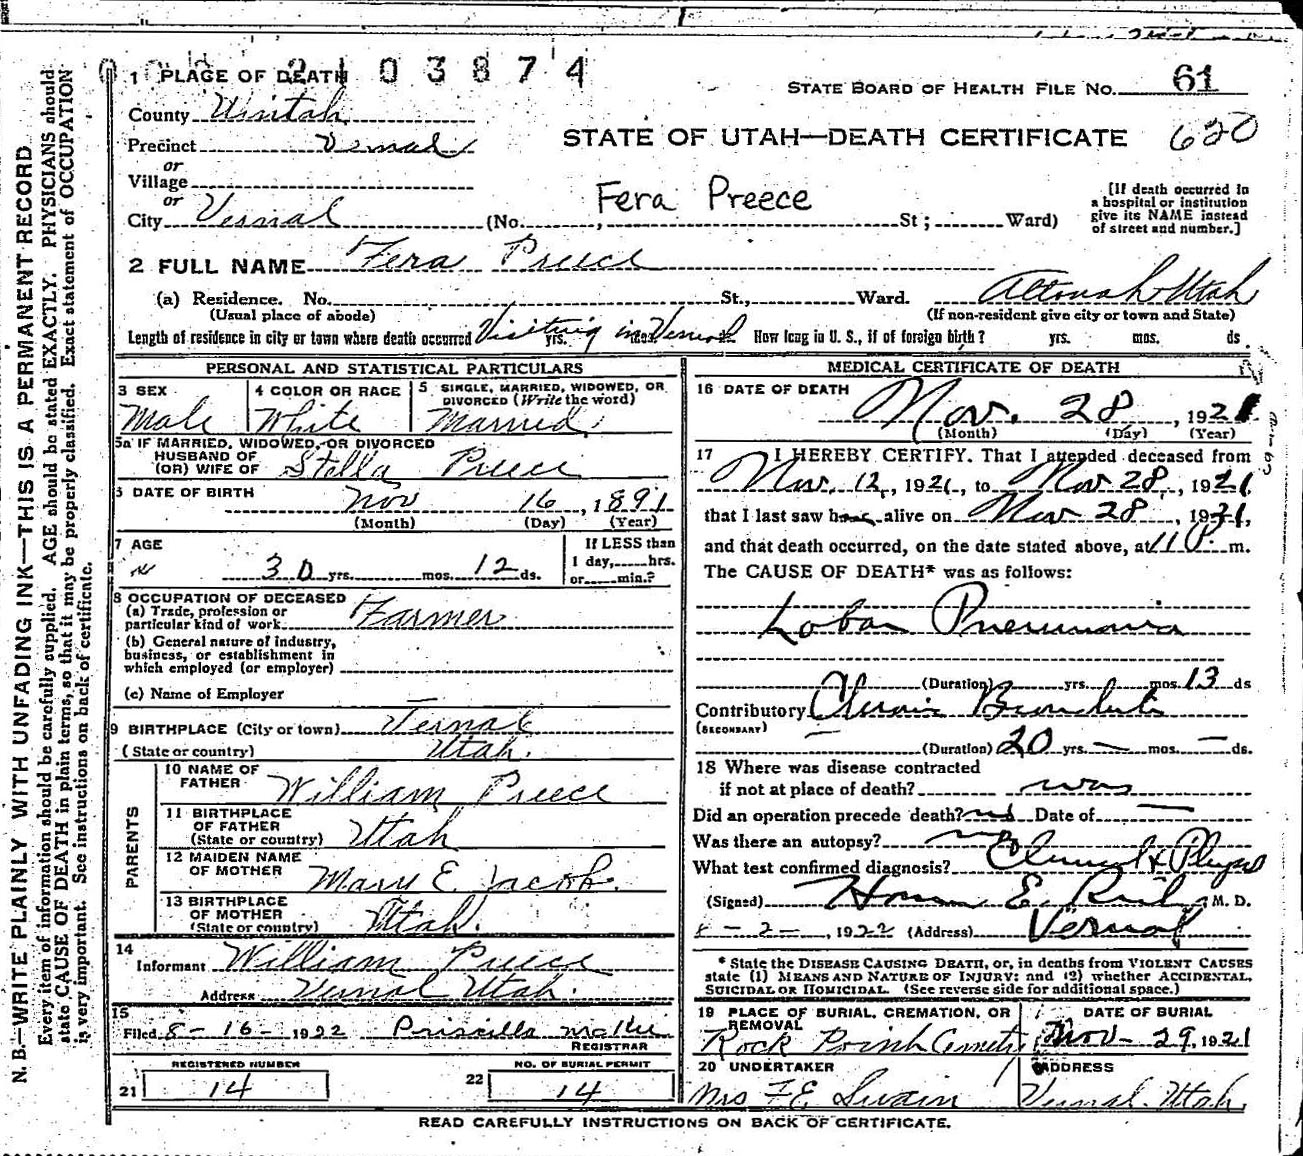 0 0 2 1 0 3 8 7 4
1 PLACE OF DEATH
STATE BOARD OF HEALTH FILE NO. 61
County Uintah
620
Precinct Vernal
STATE OF UTAH—DEATH CERTIFICATE
or
Village
or
City Vernal (No. , St ; Ward)
Fera Preece
[If death occurred in
a hospital or institution
give its NAME instead
of street and number.]
2 FULL NAME Fera Preece
(a) Residence. No. St., Ward. Altonah Utah
(Usual place of abode) (If non-resident give city or town and State)
Length of residence in city or town where death occurred Visiting in Vernal yrs. mos. How long in U. S., if of foreign birth? yrs. mos. ds.
PERSONAL AND STATISTICAL PARTICULARS
3 SEX Male
4 COLOR OR RACE White
5 SINGLE, MARRIED, WIDOWED, OR
DIVORCED (Write the word)
Married
5a IF MARRIED, WIDOWED, OR DIVORCED
HUSBAND OF
(OR) WIFE OF Stella Preece
6 DATE OF BIRTH Nov 16, 1891
(Month) (Day) (Year)
7 AGE 30 yrs. mos. 12 ds.
If LESS than
1 day, hrs.
or min.?
8 OCCUPATION OF DECEASED
(a) Trade, profession or
particular kind of work Farmer
(b) General nature of industry,
business, or establishment in
which employed (or employer)
(c) Name of Employer —
9 BIRTHPLACE (City or town) Vernal
(State or country) Utah.
PARENTS
10 NAME OF
FATHER William Preece
11 BIRTHPLACE
OF FATHER
(State or country) Utah
12 MAIDEN NAME
OF MOTHER Mary E Jacob.
13 BIRTHPLACE
OF MOTHER
(State or country) Utah.
14
Informant William Preece
Address Vernal Utah.
15
Filed 8-16-1922 Priscilla McKee
REGISTRAR
REGISTERED NUMBER
21 14
NO. OF BURIAL PERMIT
22 14
MEDICAL CERTIFICATE OF DEATH
16 DATE OF DEATH
Nov. 28, 1921
(Month) (Day) (Year)
17 I HEREBY CERTIFY. That I attended deceased from
Nov. 12, 1921, to Nov 28, 1921
that I last saw h alive on Nov 28, 1921,
and that death occurred, on the date stated above, at 11 P. m.
The CAUSE OF DEATH* was as follows:
Lobar Pneumonia
(Duration) yrs. mos. 13 ds
Contributory Chronic Bronchitis
(SECONDARY)
(Duration) 20 yrs. — mos. — ds.
18 Where was disease contracted
if not at place of death? was
Did an operation precede death? no Date of —
Was there an autopsy? no
What test confirmed diagnosis? Clinical & Physc
(Signed) E. M. D.
8-2-, 1922 (Address) Vernal
* State the DISEASE CAUSING DEATH, or, in deaths from VIOLENT CAUSES
state (1) MEANS AND NATURE OF INJURY; and (2) whether ACCIDENTAL,
SUICIDAL OR HOMICIDAL. (See reverse side for additional space.)
19 PLACE OF BURIAL, CREMATION, OR
REMOVAL
Rock Point Cemetry
DATE OF BURIAL
Nov - 29, 1921
20 UNDERTAKER
Mrs F E Swain
ADDRESS
Vernal. Utah.
READ CAREFULLY INSTRUCTIONS ON BACK OF CERTIFICATE.
N. B.—WRITE PLAINLY WITH UNFADING INK—THIS IS A PERMANENT RECORD
Every item of information should be carefully supplied. AGE should be stated EXACTLY. PHYSICIANS should
state CAUSE OF DEATH in plain terms, so that it may be properly classified. Exact statement of OCCUPATION
is very important. See instructions on back of certificate.